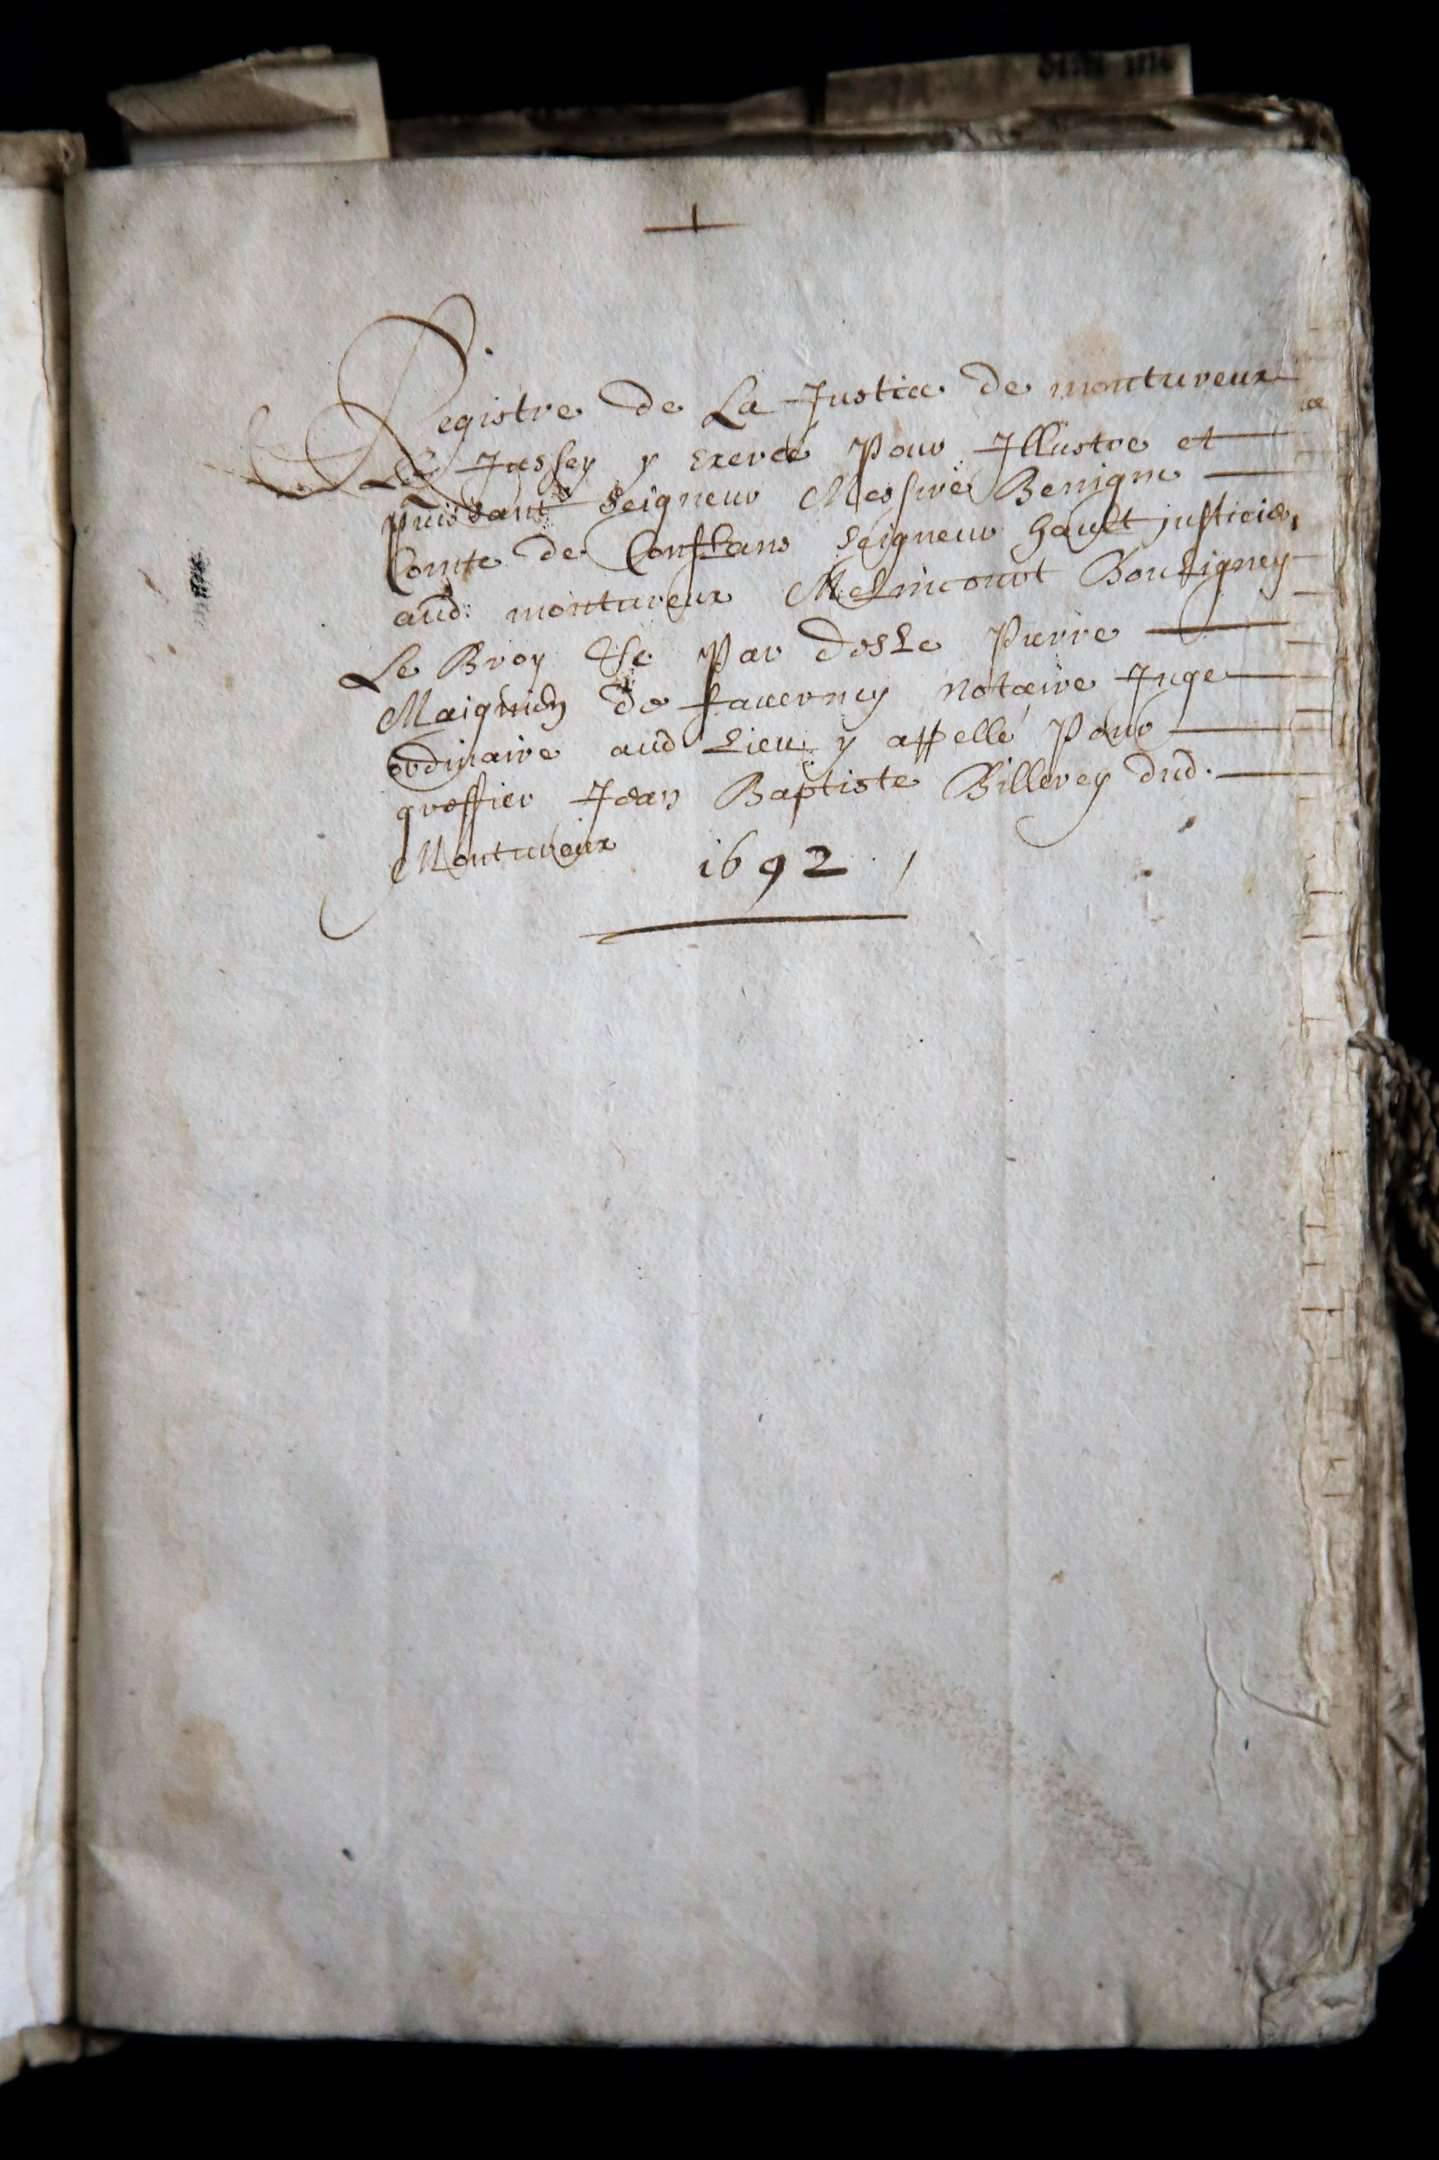 Registre de La Justice de montureux
Les Jussey y exercée Pour Illustre et
puissant seigneur Messire Benigne
Comte de Conflans seigneur hault justicier
aud: montureux Melincourt Bousigney
Le Broy &c Par dosle Pierre
Maignien de faverney notaire Juge
ordinaire aud Lieu y appellé Pour
greffier Jean Baptiste Billerey dud.
Montureux 1692